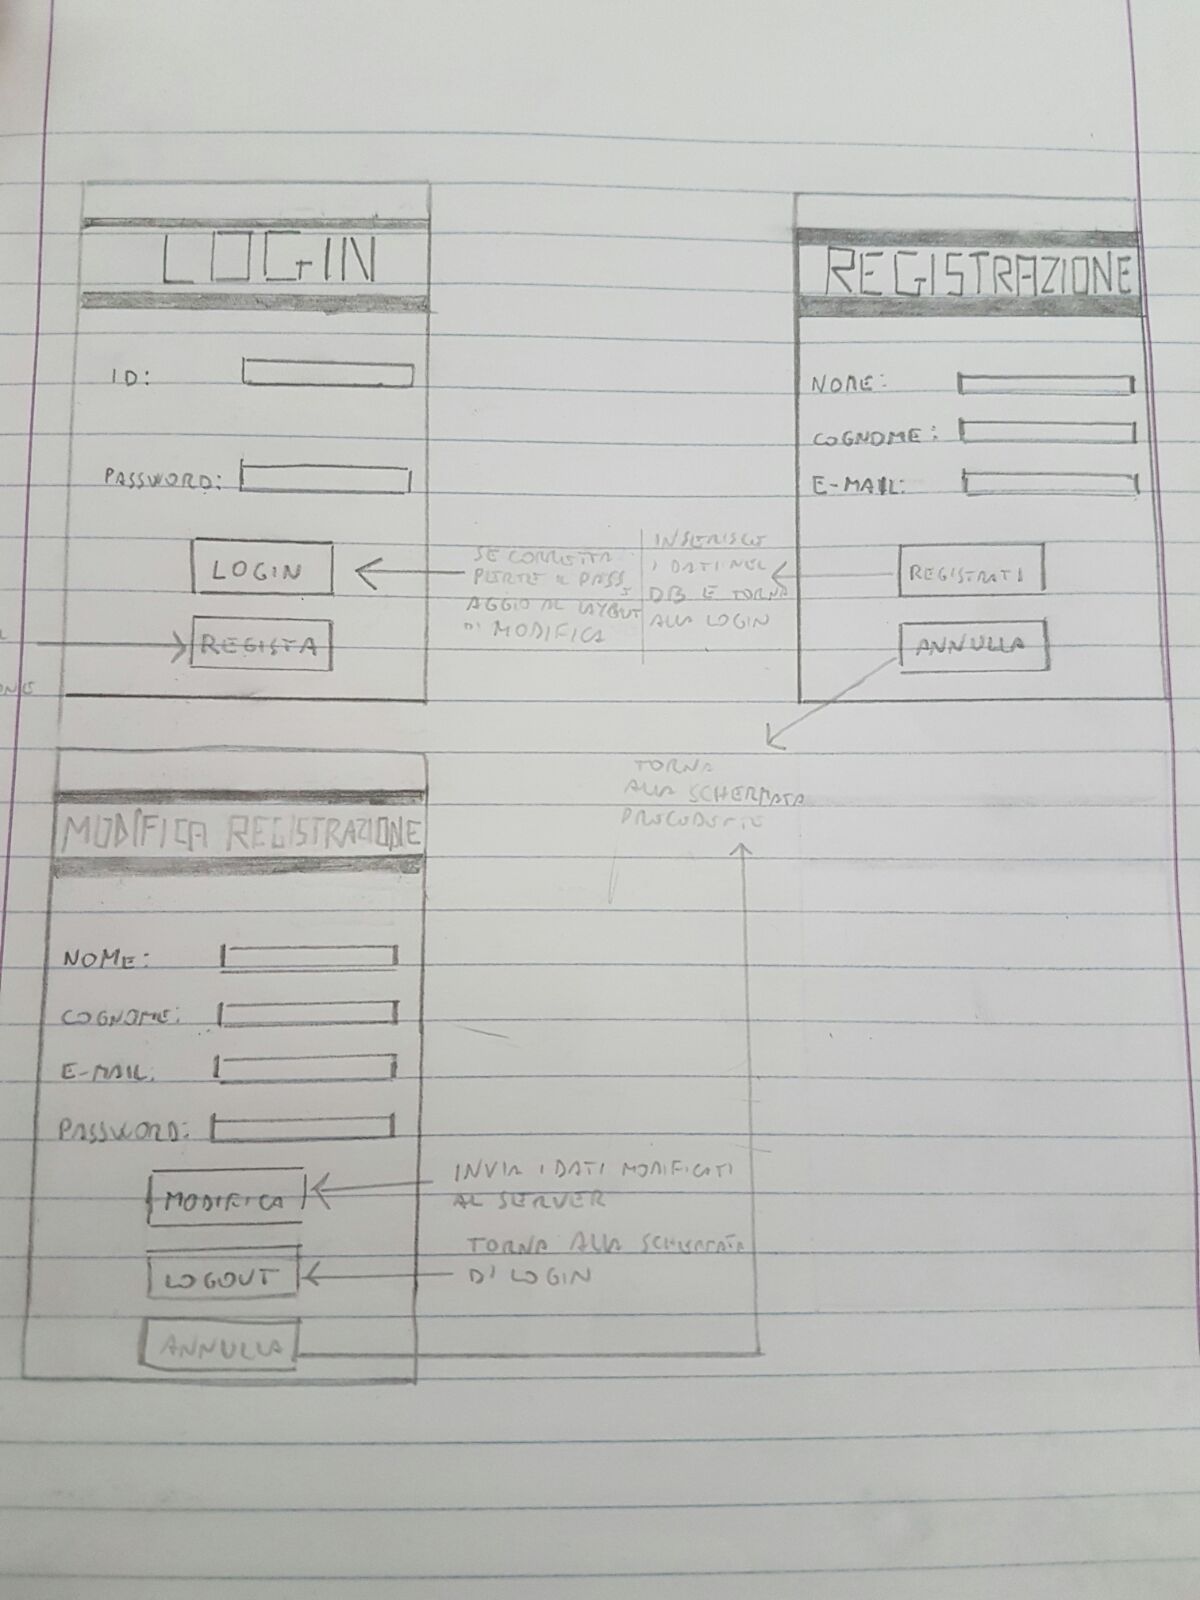 LOGIN
ID:
PASSWORD:
LOGIN
REGISTA
SE CORRETTA
PERTE IL PASS
AGGIO AL LAYOUT
DI MODIFICA
INSERISCE
I DATI NEL
DB E TORNA
ALLA LOGIN
REGISTRAZIONE
NOME:
COGNOME:
E-MAIL:
REGISTRATI
ANNULLA
TORNA
ALLA SCHERMATA
MODIFICA REGISTRAZIONE
NOME:
COGNOME:
E-MAIL:
PASSWORD:
MODIFICA
INVIA I DATI MODIFICATI
AL SERVER
LOGOUT
TORNA ALLA SCHERMATA
DI LOGIN
ANNULLA